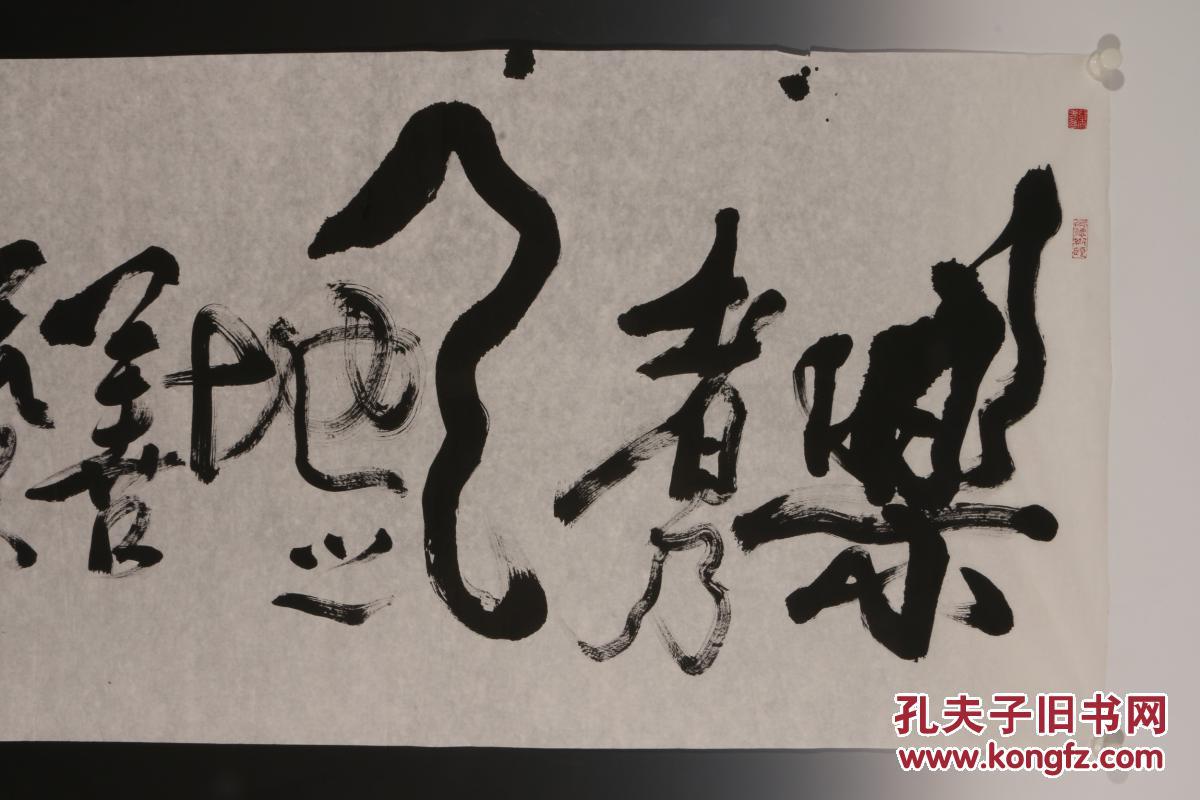 樂
者乃
天
地之
善
孔夫子旧书网
www.kongfz.com